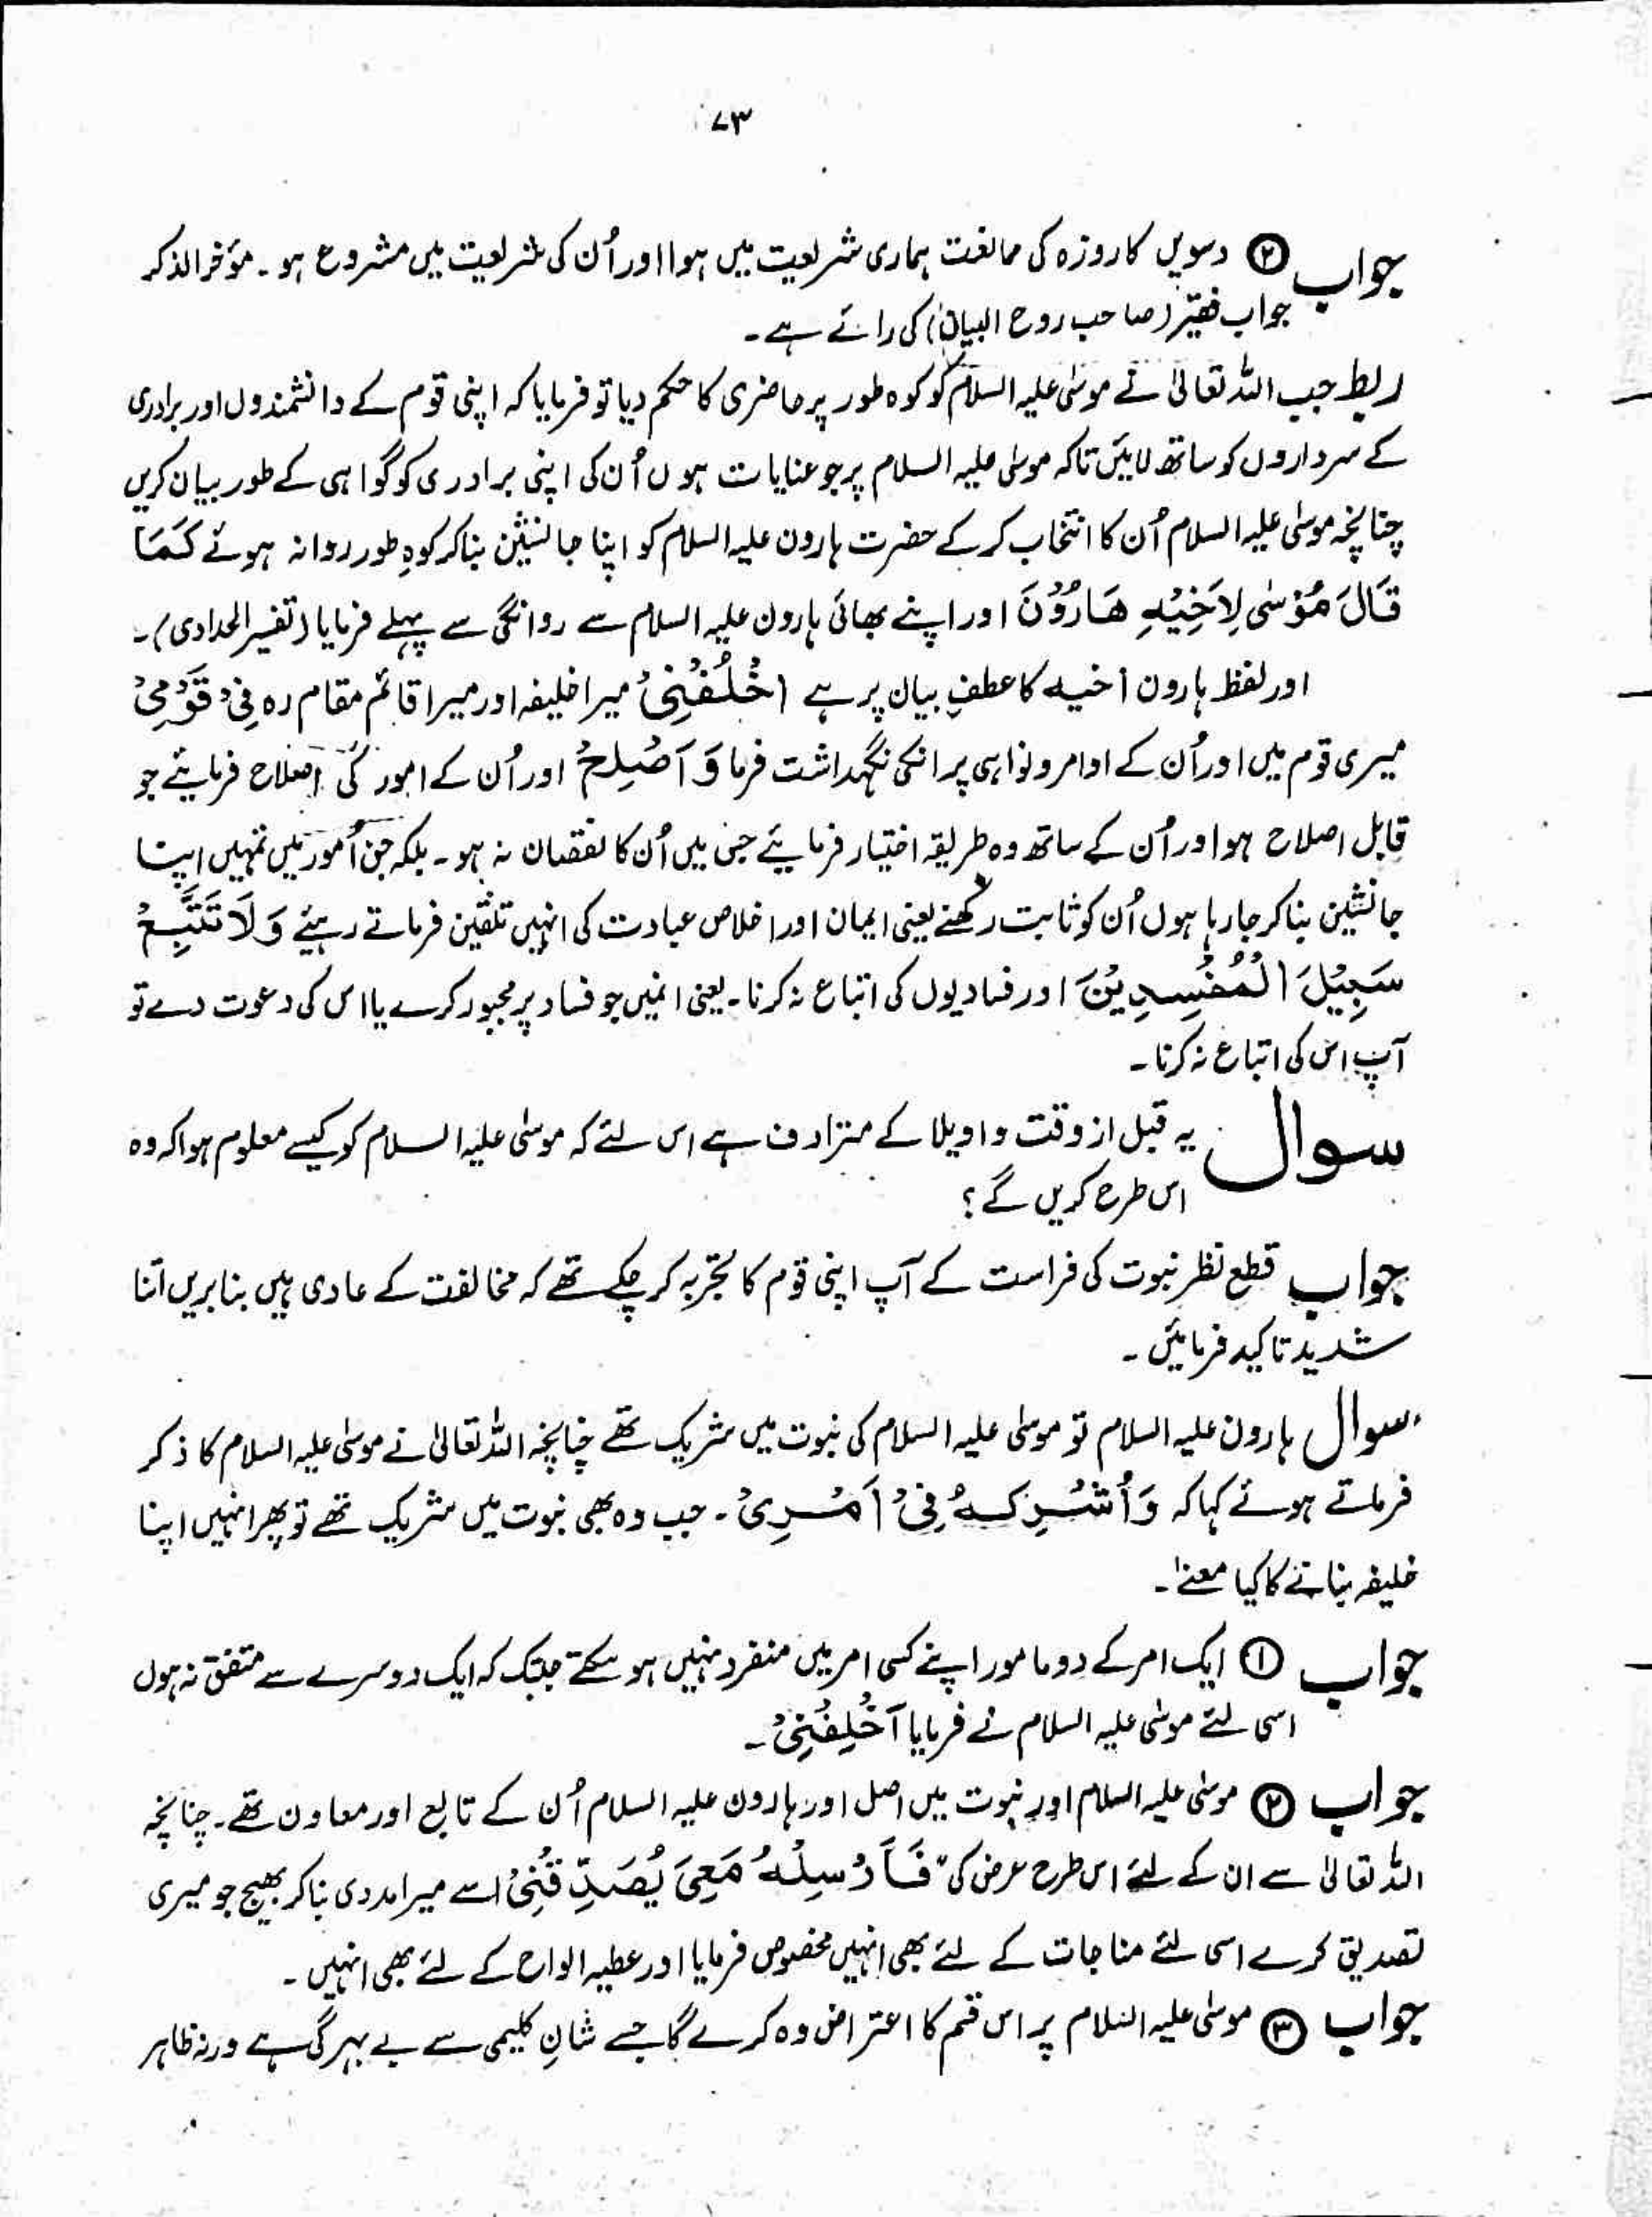 ۷۳
جواب ② دسویں کا روزہ کی ممانعت ہماری شریعت میں ہوا اور اُن کی شریعت میں مشروع ہو۔ مؤخر الذکر
جواب فقیر (صاحب روح البیان) کی رائے ہے۔
ربط جب اللہ تعالیٰ نے موسیٰ علیہ السلام کو کوہ طور پر حاضری کا حکم دیا تو فرمایا کہ اپنی قوم کے دانشمندوں اور برادری
کے سرداروں کو ساتھ لائیں تاکہ موسیٰ علیہ السلام پر جو عنایات ہوں اُن کی اپنی برادری کو گواہی کے طور بیان کریں
چنانچہ موسیٰ علیہ السلام اُن کا انتخاب کر کے حضرت ہارون علیہ السلام کو اپنا جانشین بنا کر کوہِ طور روانہ ہوئے کَمَا
قَالَ مُوْسٰی لِاَخِیْہِ ھَارُوْنَ اور اپنے بھائی ہارون علیہ السلام سے روانگی سے پہلے فرمایا (تفسیر الحدادی)۔
اور لفظ ہارون أخیہ کا عطفِ بیان پر ہے اخْلُفْنِیْ میرا خلیفہ اور میرا قائم مقام رہ فِیْ قَوْمِیْ
میری قوم میں اور اُن کے اوامر و نواہی پر انکی نگہداشت فرما وَ اَصْلِحْ اور اُن کے امور کی اصلاح فرمایئے جو
قابل اصلاح ہو اور اُن کے ساتھ وہ طریقہ اختیار فرمایئے جس میں اُن کا نقصان نہ ہو۔ بلکہ جن اُمور میں تمہیں اپنا
جانشین بنا کر جا رہا ہوں اُن کو ثابت رکھنے یعنی ایمان اور اخلاص عبادت کی انہیں تلقین فرماتے رہیئے وَلَا تَتَّبِعْ
سَبِیْلَ الْمُفْسِدِیْنَ اور فسادیوں کی اتباع نہ کرنا۔ یعنی انہیں جو فساد پر مجبور کرے یا اس کی دعوت دے تو
آپ اس کی اتباع نہ کرنا۔
سوال یہ قبل از وقت واویلا کے مترادف ہے اس لئے کہ موسیٰ علیہ السلام کو کیسے معلوم ہوا کہ وہ
اس طرح کریں گے؟
جواب قطع نظر نبوت کی فراست کے آپ اپنی قوم کا تجربہ کر چکے تھے کہ مخالفت کے عادی ہیں بنابریں اتنا
شدید تاکید فرمائیں۔
سوال ہارون علیہ السلام تو موسیٰ علیہ السلام کی نبوت میں شریک تھے چنانچہ اللہ تعالیٰ نے موسیٰ علیہ السلام کا ذکر
فرماتے ہوئے کہا کہ وَأَشْرِکْہُ فِیْ اَمْرِیْ۔ جب وہ بھی نبوت میں شریک تھے تو پھر انہیں اپنا
خلیفہ بنانے کا کیا معنےٰ۔
جواب ① ایک امر کے دو مامور اپنے کسی امر میں منفرد نہیں ہو سکتے جبتک کہ ایک دوسرے سے متفق نہ ہوں
اسی لئے موسیٰ علیہ السلام نے فرمایا اَخْلِفْنِیْ۔
جواب ② موسیٰ علیہ السلام اور نبوت میں اصل اور ہارون علیہ السلام اُن کے تابع اور معاون تھے۔ چنانچہ
اللہ تعالیٰ سے ان کے لئے اس طرح عرض کی "فَاَرْسِلْہُ مَعِیَ یُصَدِّقُنِیْ اسے میرا مددی بنا کر بھیج جو میری
تصدیق کرے اسی لئے مناجات کے لئے بھی انہیں مخصوص فرمایا اور عطیہ الواح کے لئے بھی انہیں۔
جواب ③ موسیٰ علیہ السلام پر اس قسم کا اعتراض وہ کرے گا جسے شانِ کلیمی سے بے بہرگی ہے ورنہ ظاہر